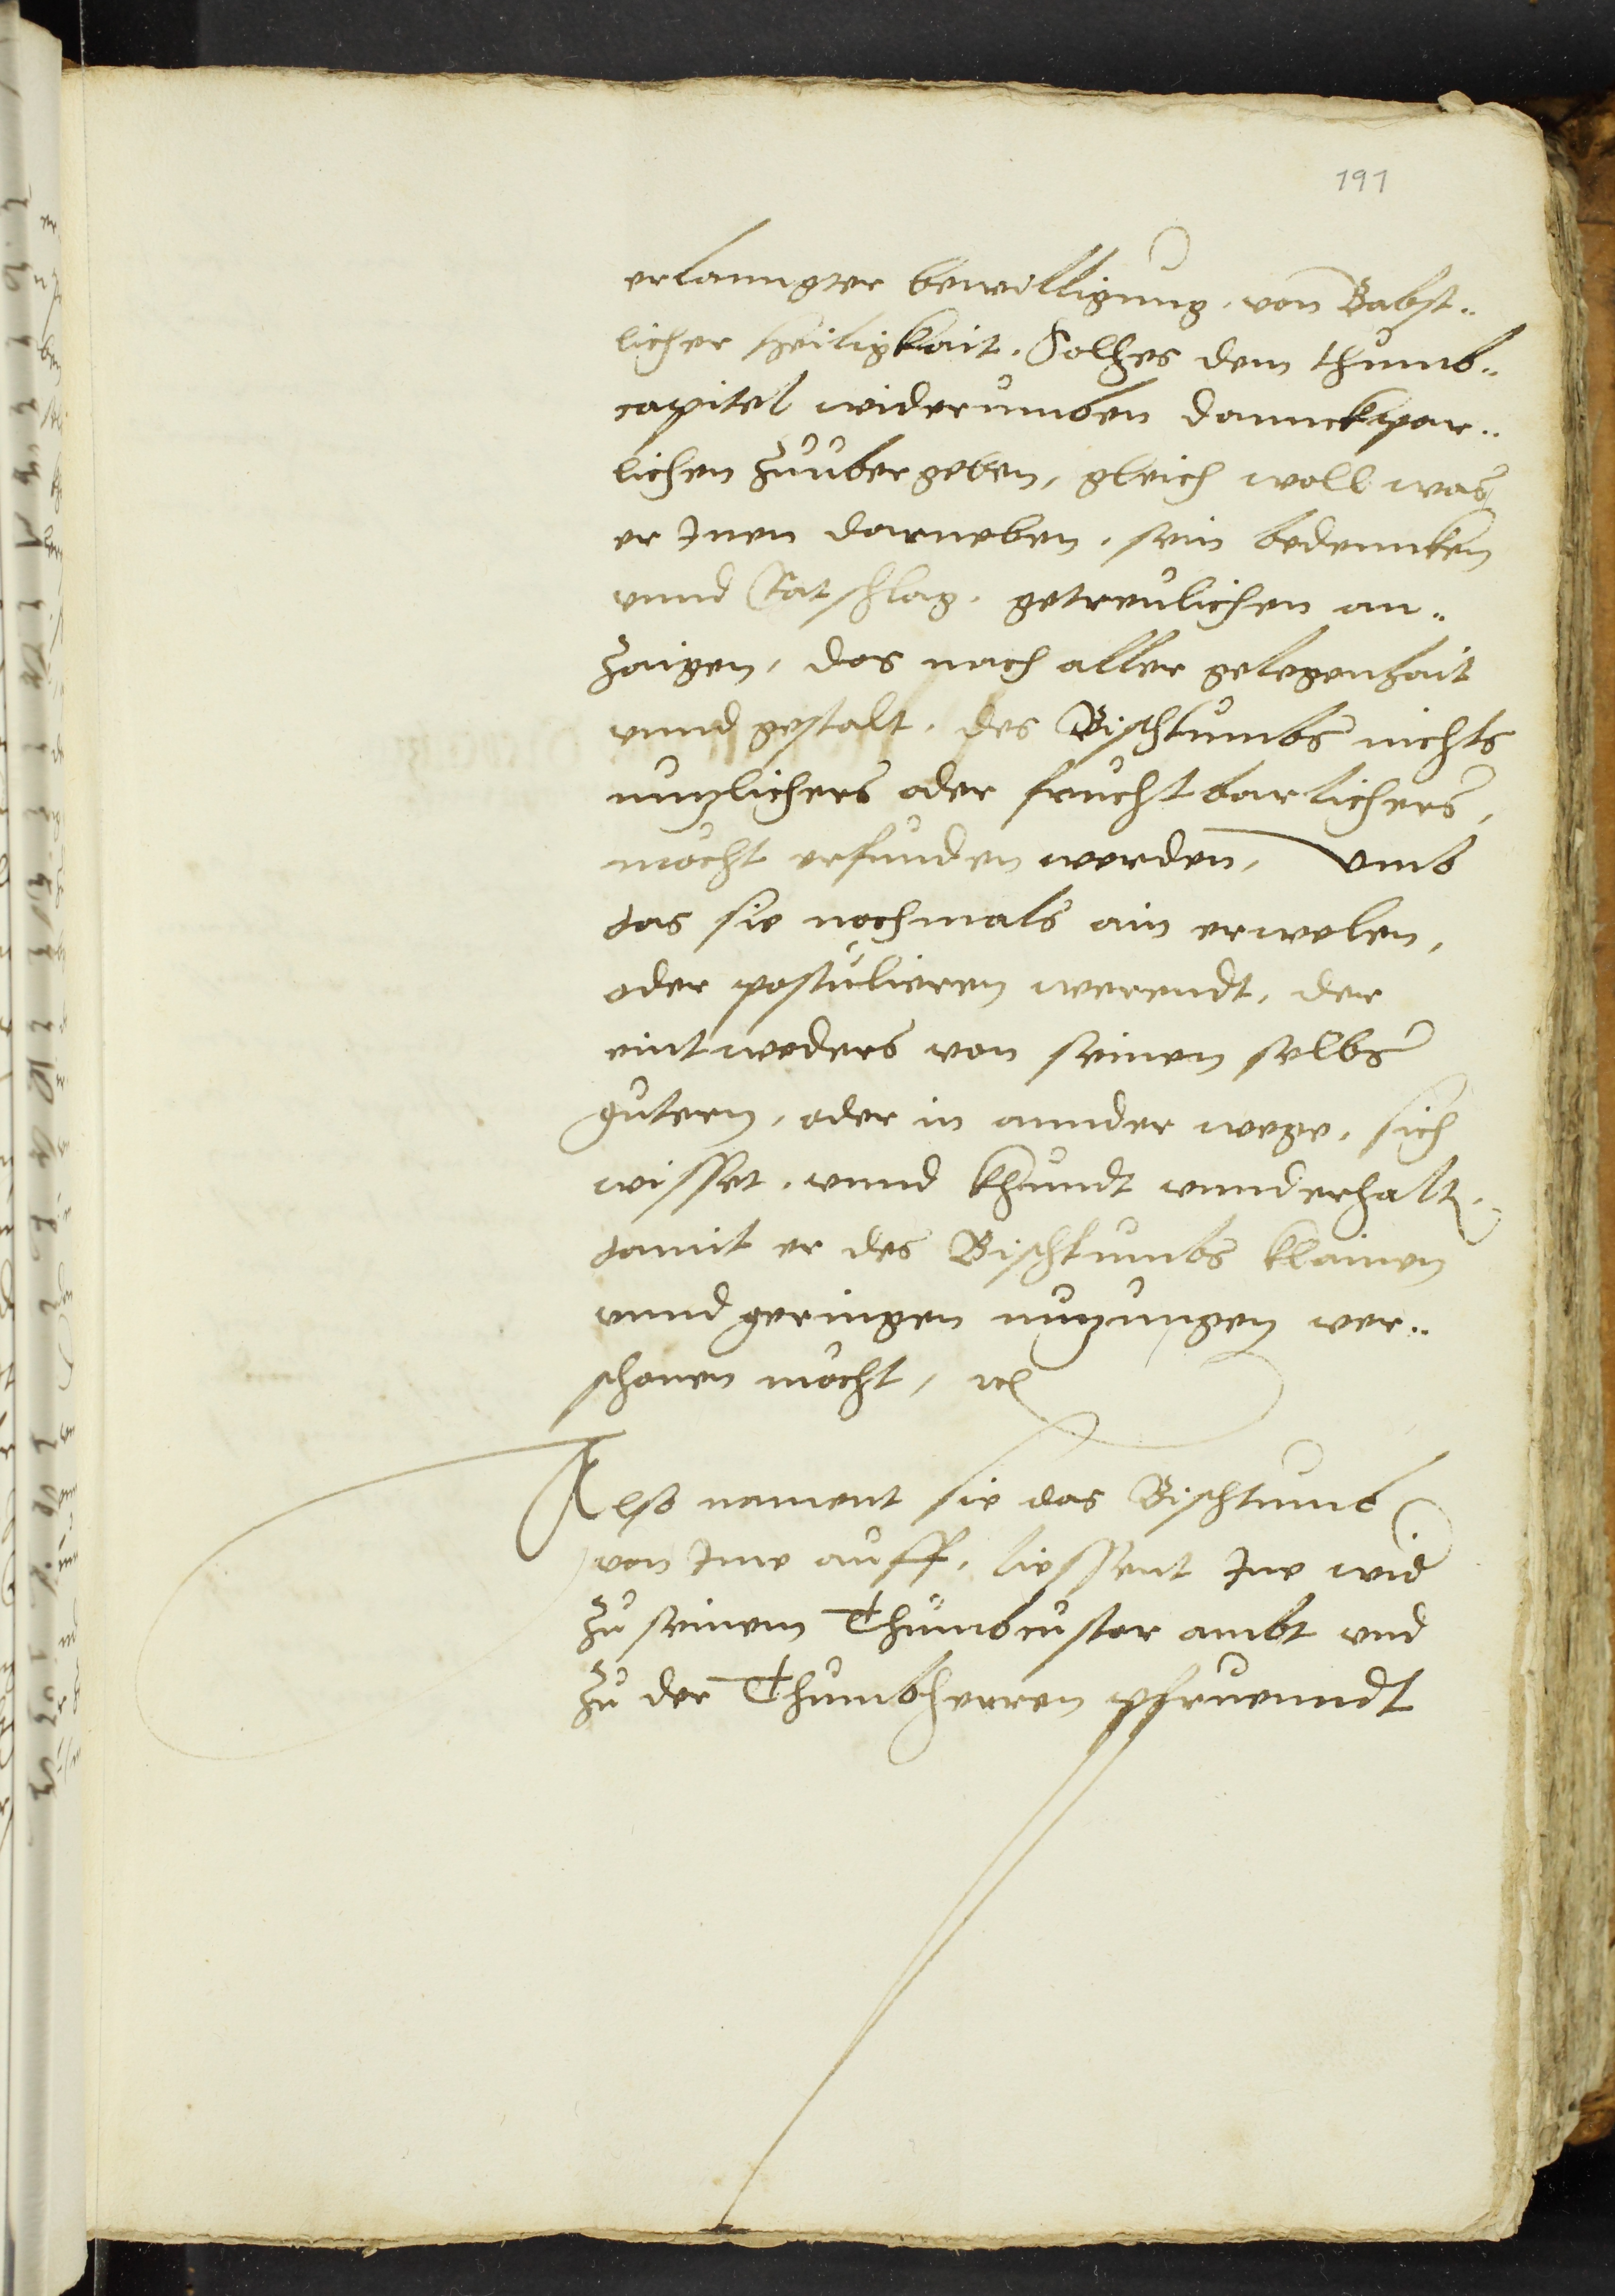 191
erlanngter bewilligung, von Babst..
licher heiligkait, Solhes dem thumb..
capitel widerumben dannckpar..
lichen zuubergeben, gleich woll was
er Inen darneben, sein bedenncken
vnnd Ratschlag, getreulichen an..
zaigen, das nach aller gelegenhait
vnnd gestalt, des Bischtumbs nichts
nuzlichers oder fruchtbarlichers,
möcht erfunden werden, Vmb
das sie nochmals ain erwelen,
oder postulieren werendt, der
eintweders von seinen selbs
gutern, oder in annder wege, sich
wisset, vnnd khundt vnnderhalt..
damit er des Bischtumbs klainen
vnnd geringen nuzungen ver..
schonen möcht, rc
Also nament sie das Bischtumb
von Ime auff, liessent Ine wid
zu seinem Thumbcustor ambt vnd
zu der Thumbherren pfruenndt